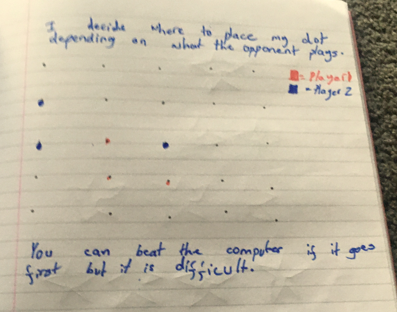 I decide where to place my dot
depending on what the opponent plays.
= Player 1
= Player 2
You can beat the computer if it goes
first but it is difficult.